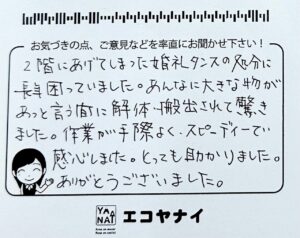 お気づきの点、ご意見などを率直にお聞かせ下さい！
2階にあげてしまった婚礼タンスの処分に
長年困っていました。あんなに大きな物が
あっと言う間に解体・搬出されて驚き
ました。作業が手際よく、スピーディーで
感心しました。とっても助かりました。
ありがとうございました。
YANAI
エコヤナイ